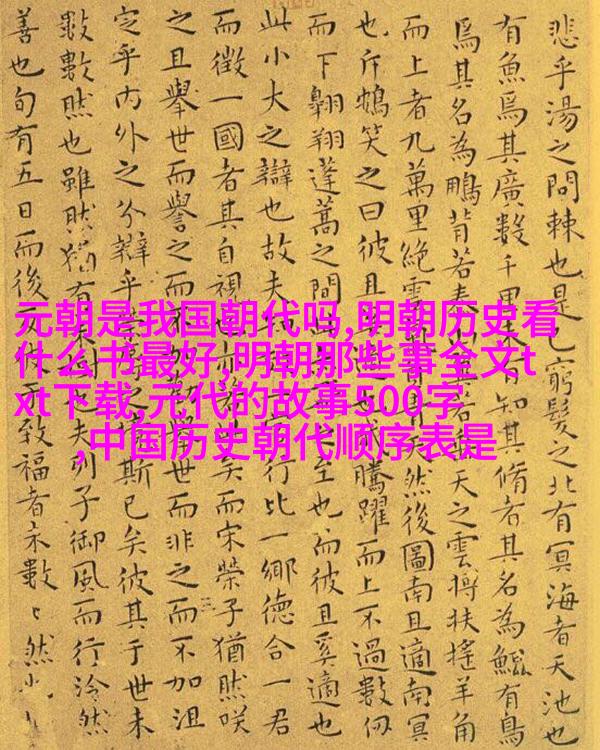 悲乎湯之問棘也是已窮髮之北有冥海者天池也
有魚焉其廣數千里未有知其脩者其名為鯤有鳥
焉其名為鵬背若泰山若天之雲摶扶搖羊角
而上者九萬里絕雲青天然後圖南且適南冥
也斥鴳笑之曰彼且我騰躍而上不過數仞
而下翱翔蓬蒿之間此之至也而彼且奚適也
此小大之辯也故夫行比一鄉德合一君
而徵一國者其自視也亦矣而宋榮子猶然咲
之且舉世而譽之而不加世而非之而不加沮
定乎內外之分辯乎斯已矣彼其于世未
數數然也雖然猶有未也夫列子御風而行泠然
善也旬有五日而後反于致福者未數〻然
元朝是我国朝代吗,明朝历史看
什么书最好,明朝那些事全文t
xt下载,元代的故事500字
,中国历史朝代顺序表是